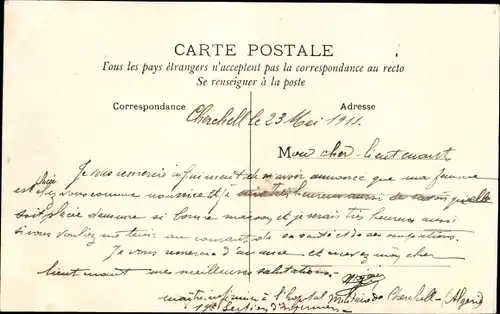 CARTE POSTALE
Tous les pays étrangers n'acceptent pas la correspondance au recto
Se renseigner à la poste
Correspondance
Adresse
Cherchell le 23 Mai 1911.
Mon cher lieutenant
Je vous remercie infiniment de m'avoir annoncé que ma femme
est chez vous comme nourrice et je suis très heureux aussi de savoir qu'elle
soit placée dans une si bonne maison, et je serais très heureux aussi
si vous vouliez me tenir au courant de sa santé et de ses occupations.
Je vous remercie d'avance et recevez mon cher
lieutenant mes meilleures salutations.
infirmier à l'hopital Militaire de Cherchell - (Algérie)
19e Section d'Infirmiers